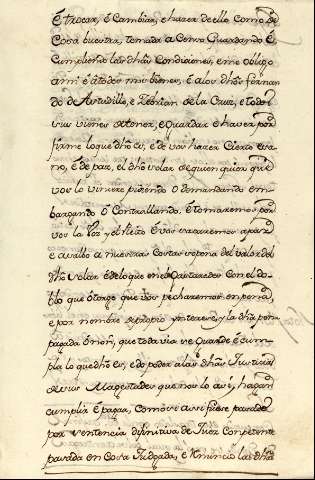 É trocar, é Cambiar, e hazer de ello como de
Cosa buestra, tomada a Censo Guardando é
Cumpliendo las dhâs Condiciones, e me obligo
a mi é á todos mis bienes, é a los dhôs fernan
do de Astudillo, e Fabrian de la Cruz, e todos
sus vienes a tener, e Guardar e haver por
firme lo que dhô es, e de vos hazer Cierto e sa
no, é de paz, el dhô solar de quien quier que
vos lo viniere pidiendo o demandando em
bargando ó Contrallando. É tomaremos por
vos la voz y el Pleito é vos sacaremos a paz
e a salvo a nuestras Costas so pena del valor del
dhô Solar é de lo que en el Gastaredes Con el do
blo que otorgo que vos pecharemos en pena
e por nombre de propio ynterese, y la dhâ pena
pagada ó non, que todavia se Guarde é cum
pla lo que dhô es, e do poder a las dhâs Justicias
de sus Magestades que nos lo assi, hagan
cumplir é pagar, Como si assi fuese pasado
por sentencia difinitiva de Juez Competente
pasada en Cosa Judgada, e Renuncio las dhâs